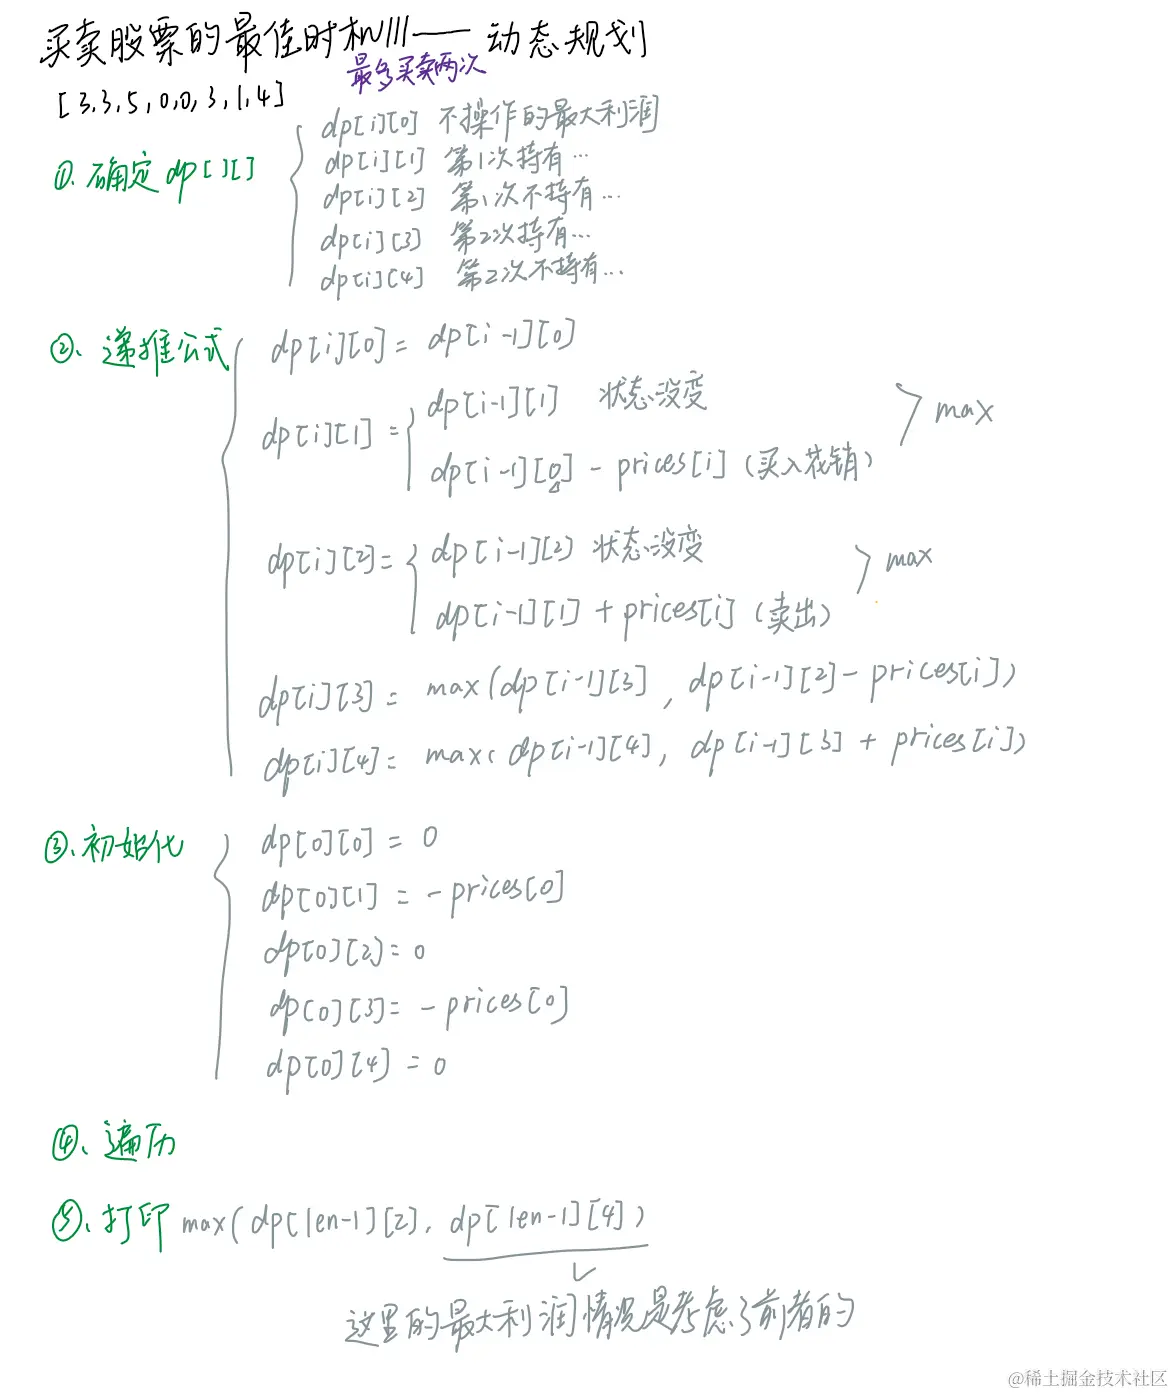 买卖股票的最佳时机III——动态规划
最多买卖两次
[3,3,5,0,0,3,1,4]
①、确定dp[][]
dp[i][0] 不操作的最大利润
dp[i][1] 第1次持有…
dp[i][2] 第1次不持有…
dp[i][3] 第2次持有…
dp[i][4] 第2次不持有…
②、递推公式
dp[i][0] = dp[i-1][0]
dp[i][1] =
dp[i-1][1] 状态没变
dp[i-1][0] - prices[i] (买入花销)
max
dp[i][2] =
dp[i-1][2] 状态没变
dp[i-1][1] + prices[i] (卖出)
max
dp[i][3] = max(dp[i-1][3], dp[i-1][2] - prices[i])
dp[i][4] = max(dp[i-1][4], dp[i-1][3] + prices[i])
③、初始化
dp[0][0] = 0
dp[0][1] = -prices[0]
dp[0][2] = 0
dp[0][3] = -prices[0]
dp[0][4] = 0
④、遍历
⑤、打印 max(dp[len-1][2], dp[len-1][4])
这里的最大利润情况是考虑了前者的
@稀土掘金技术社区